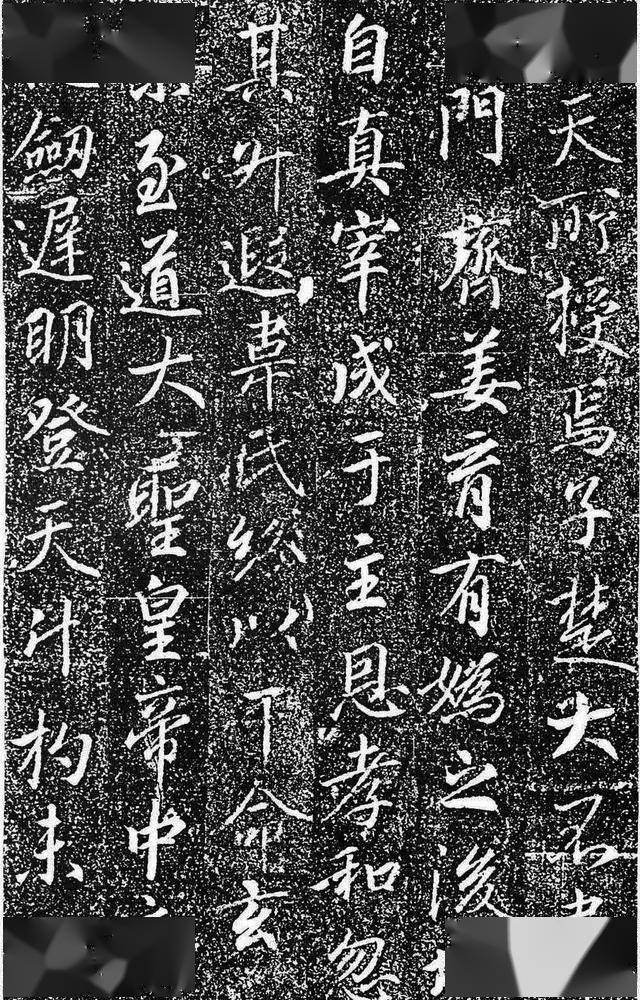 天所授焉子楚大
門齊姜育有媯之後
自真宰成于主恩孝和忽
其升遐韋氏以命玄
宗至道大聖皇帝中
劔遲明登天斗杓未